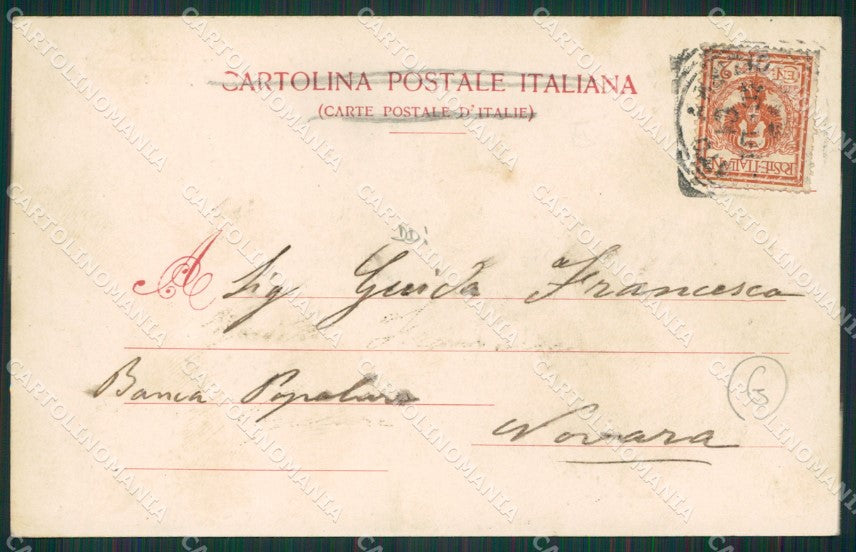 CARTOLINA POSTALE ITALIANA
(CARTE POSTALE D'ITALIE)
POSTE·ITALIANE
A Sig Guida Francesco
Banca Popolare
Novara
G
CARTOLINOMANIA